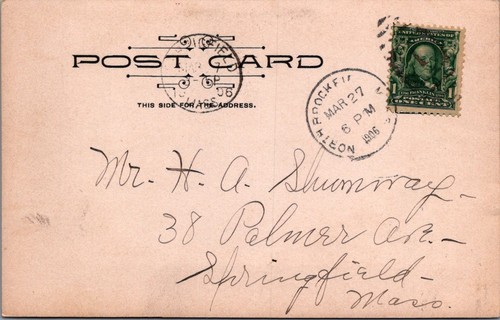 POST CARD
THIS SIDE FOR THE ADDRESS.
NORTH BROOKFI
MAR 27
6 PM
1906
MASS.
06
UNITED STATES OF
AMERICA
1 1
ONE CENT
Mr. H. A. Shumway
38 Palmer Ave.
Springfield
Mass.